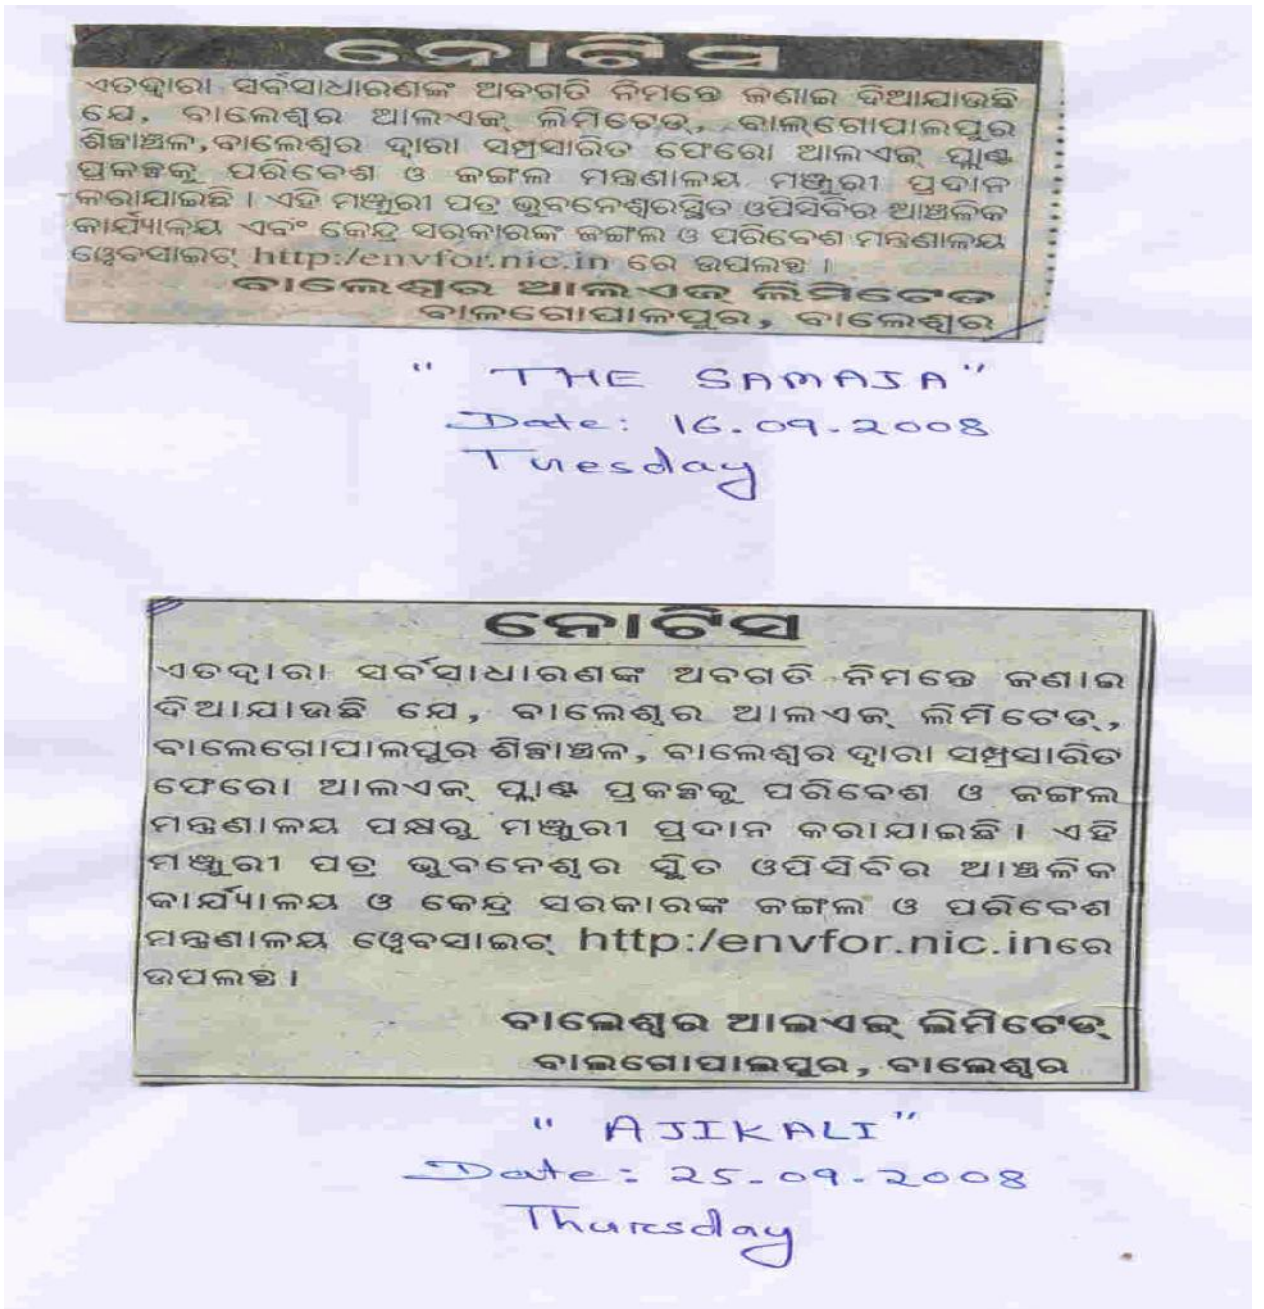 ନୋଟିସ
ଏତଦ୍ୱାରା ସର୍ବସାଧାରଣଙ୍କ ଅବଗତି ନିମନ୍ତେ ଜଣାଇ ଦିଆଯାଉଛି
ଯେ, ବାଲେଶ୍ୱର ଆଲଏଜ୍ ଲିମିଟେଡ୍, ବାଲ୍‌ଗୋପାଲପୁର
ଶିଳ୍ପାଞ୍ଚଳ, ବାଲେଶ୍ୱର ଦ୍ୱାରା ସମ୍ପ୍ରସାରିତ ଫେରୋ ଆଲଏଜ୍ ପ୍ଲାଣ୍ଟ
ପ୍ରକଳ୍ପକୁ ପରିବେଶ ଓ ଜଙ୍ଗଲ ମନ୍ତ୍ରଣାଳୟ ମଞ୍ଜୁରୀ ପ୍ରଦାନ
କରାଯାଇଛି । ଏହି ମଞ୍ଜୁରୀ ପତ୍ର ଭୁବନେଶ୍ୱରସ୍ଥିତ ଓପିସିବିର ଆଞ୍ଚଳିକ
କାର୍ଯ୍ୟାଳୟ ଏବଂ କେନ୍ଦ୍ର ସରକାରଙ୍କ ଜଙ୍ଗଲ ଓ ପରିବେଶ ମନ୍ତ୍ରଣାଳୟ
ୱେବସାଇଟ୍ http:/envfor.nic.in ରେ ଉପଲବ୍ଧ ।
ବାଲେଶ୍ୱର ଆଲଏଜ୍ ଲିମିଟେଡ
ବାଲଗୋପାଳପୁର, ବାଲେଶ୍ୱର
" THE SAMAJA "
Date: 16.09.2008
Tuesday
ନୋଟିସ
ଏତଦ୍ୱାରା ସର୍ବସାଧାରଣଙ୍କ ଅବଗତି ନିମନ୍ତେ ଜଣାଇ
ଦିଆଯାଉଛି ଯେ, ବାଲେଶ୍ୱର ଆଲଏଜ୍ ଲିମିଟେଡ୍,
ବାଲେଗୋପାଲପୁର ଶିଳ୍ପାଞ୍ଚଳ, ବାଲେଶ୍ୱର ଦ୍ୱାରା ସମ୍ପ୍ରସାରିତ
ଫେରୋ ଆଲଏଜ୍ ପ୍ଲାଣ୍ଟ ପ୍ରକଳ୍ପକୁ ପରିବେଶ ଓ ଜଙ୍ଗଲ
ମନ୍ତ୍ରଣାଳୟ ପକ୍ଷରୁ ମଞ୍ଜୁରୀ ପ୍ରଦାନ କରାଯାଇଛି । ଏହି
ମଞ୍ଜୁରୀ ପତ୍ର ଭୁବନେଶ୍ୱର ସ୍ଥିତ ଓପିସିବିର ଆଞ୍ଚଳିକ
କାର୍ଯ୍ୟାଳୟ ଓ କେନ୍ଦ୍ର ସରକାରଙ୍କ ଜଙ୍ଗଲ ଓ ପରିବେଶ
ମନ୍ତ୍ରଣାଳୟ ୱେବସାଇଟ୍ http:/envfor.nic.inରେ
ଉପଲବ୍ଧ ।
ବାଲେଶ୍ୱର ଆଲଏଜ୍ ଲିମିଟେଡ୍
ବାଲଗୋପାଲପୁର, ବାଲେଶ୍ୱର
" AJIKALI "
Date: 25-09-2008
Thursday